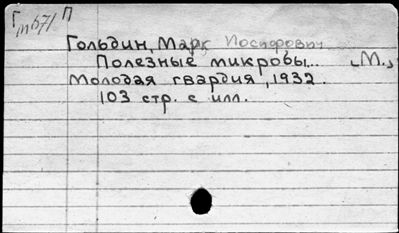 П
Гольдин, Марк Иосифович
Полезные микробы... М.,
Молодая гвардия, 1932.
103 стр. с илл.